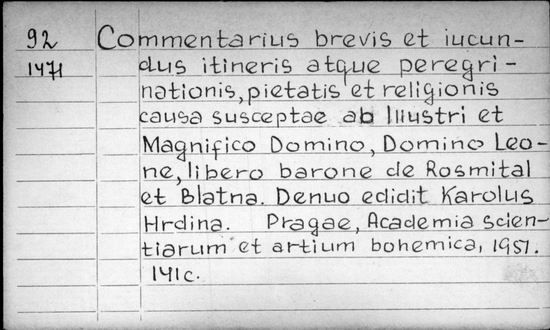 92 Commentarius brevis et iucun-
1471 dus itineris atque peregri-
nationis, pietatis et religionis
causa susceptae ab Illustri et
Magnifico Domino, Domino Leo-
ne, libero barone de Rosmital
et Blatna. Denuo edidit Karolus
Hrdina. Pragae, Academia scien-
tiarum et artium bohemica, 1951.
141 c.